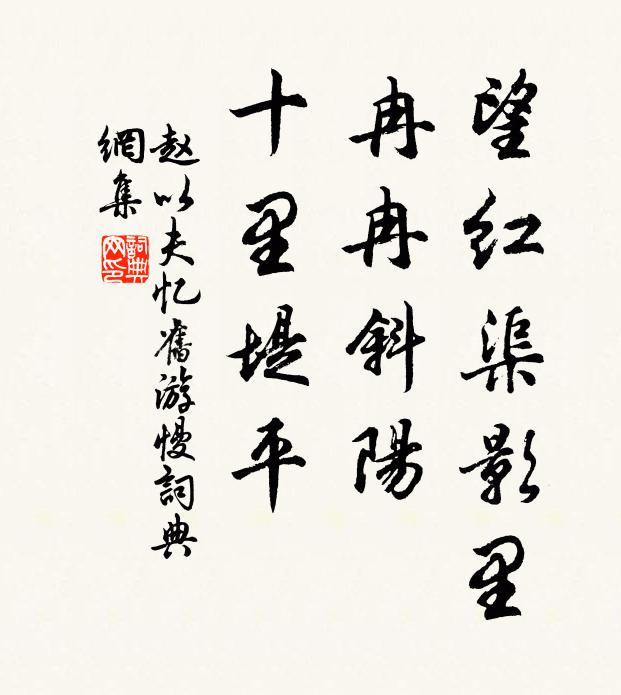 望红渠影里
冉冉斜陽
十里堤平
赵以夫忆舊游慢詞典
網集
詞典网印